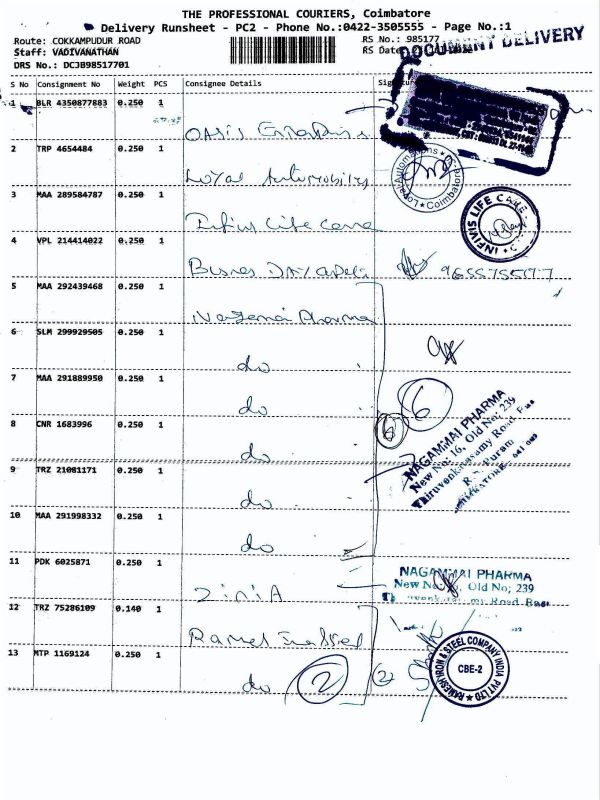 THE PROFESSIONAL COURIERS, Coimbatore
Delivery Runsheet - PC2 - Phone No.:0422-3505555 - Page No.:1
Route: COKKAMPUDUR ROAD RS No.: 985177
Staff: VADIVANATHAN RS Date
DRS No.: DCJB98517701
DOCUMENT DELIVERY
S No Consignment No Weight PCS Consignee Details
1 BLR 4350877883 0.250 1
Oasis Enterprises
2 TRP 4654484 0.250 1
Loyal Automobiles
Loyal Automations Coimbatore
3 MAA 289584787 0.250 1
Infivis Life Care
INFIVIS LIFE CARE
4 VPL 214414022 0.250 1
5 MAA 292439468 0.250 1
Pharma
6 SLM 299929505 0.250 1
do
7 MAA 291889950 0.250 1
do
6
8 CNR 1683996 0.250 1
do
6
NAGAMMAI PHARMA
New No: 16, Old No; 239
Thiruvenkatasamy Road
R.S. Puram
COIMBATORE - 641 002
9 TRZ 21081171 0.250 1
do
10 MAA 291998332 0.250 1
do
11 PDK 6025871 0.250 1
ZiniA
NAGAMMAI PHARMA
New No: Old No; 239
12 TRZ 75286109 0.140 1
13 MTP 1169124 0.250 1
do 2
2
RAMESH IRON & STEEL COMPANY INDIA PVT LTD
CBE-2